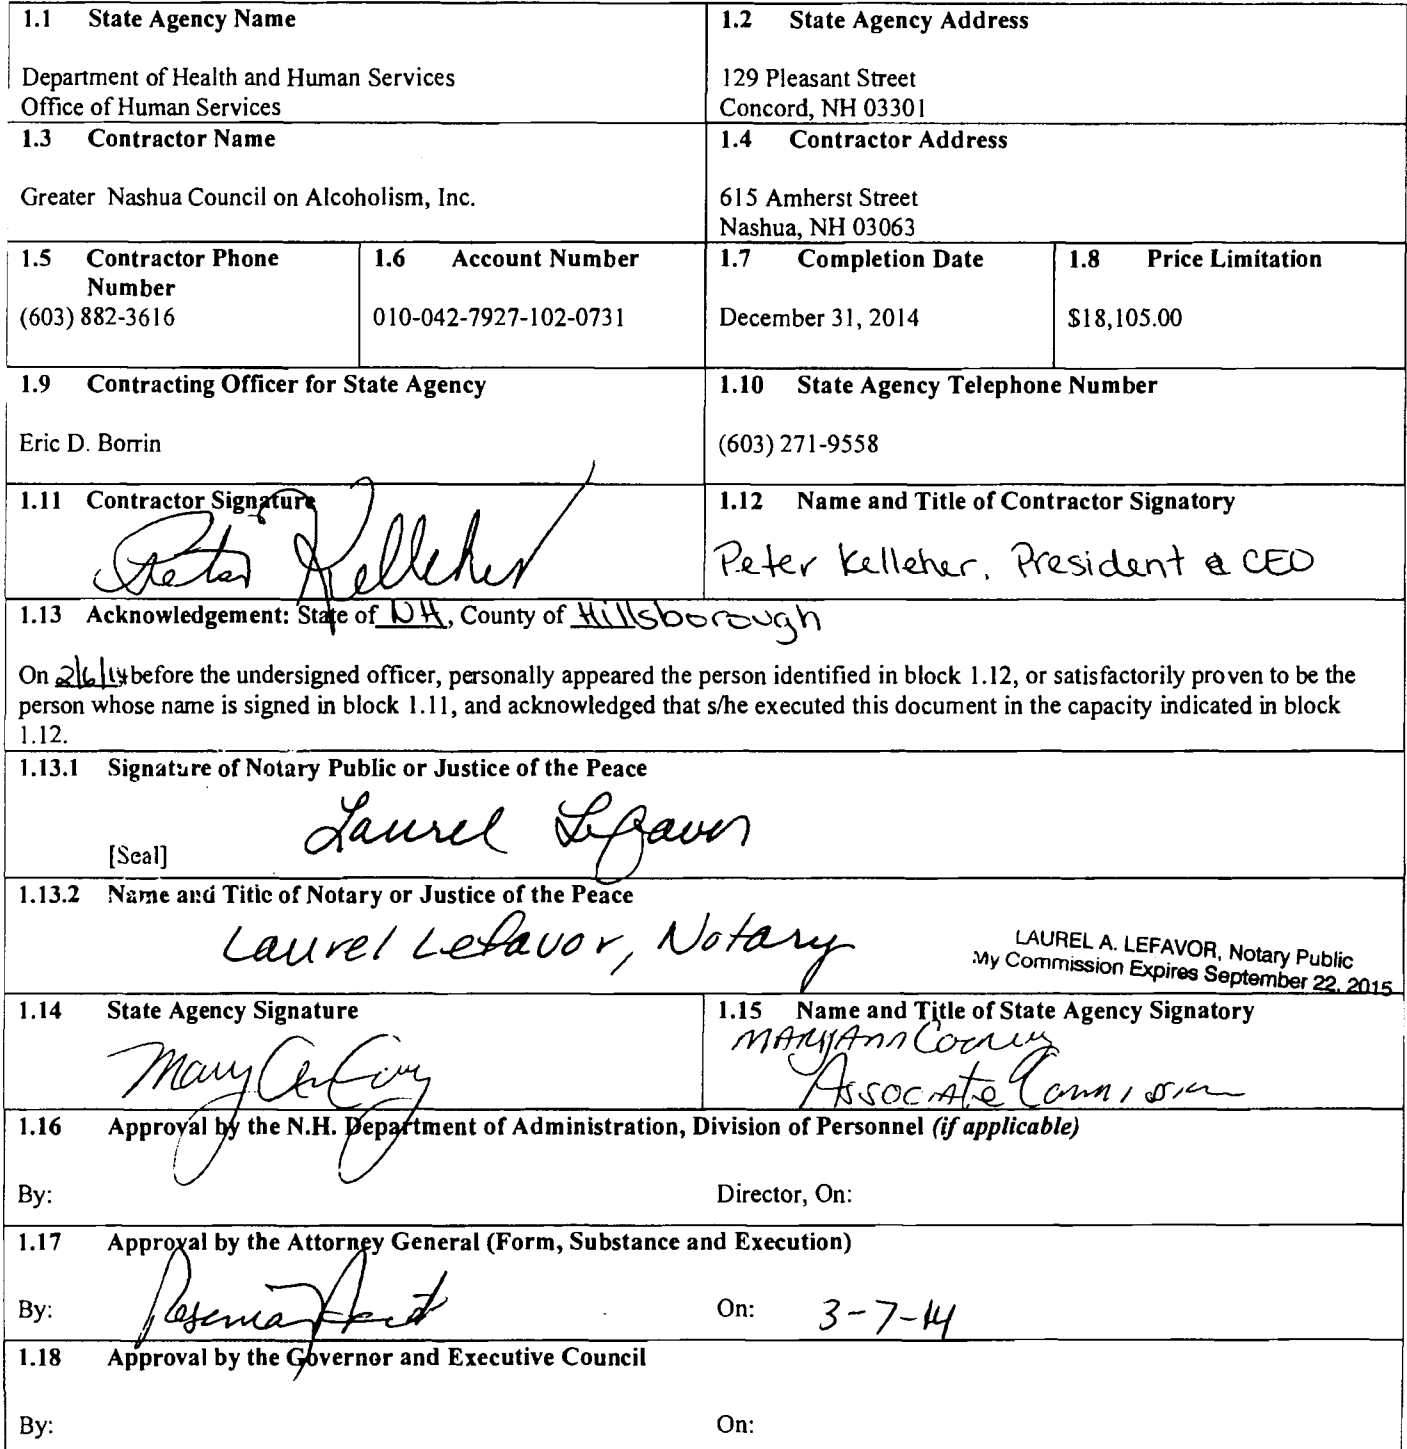 1.1 State Agency Name
Department of Health and Human Services
Office of Human Services
1.2 State Agency Address
129 Pleasant Street
Concord, NH 03301
1.3 Contractor Name
Greater Nashua Council on Alcoholism, Inc.
1.4 Contractor Address
615 Amherst Street
Nashua, NH 03063
1.5 Contractor Phone
Number
(603) 882-3616
1.6 Account Number
010-042-7927-102-0731
1.7 Completion Date
December 31, 2014
1.8 Price Limitation
$18,105.00
1.9 Contracting Officer for State Agency
Eric D. Borrin
1.10 State Agency Telephone Number
(603) 271-9558
1.11 Contractor Signature
Peter Kelleher
1.12 Name and Title of Contractor Signatory
Peter Kelleher, President & CEO
1.13 Acknowledgement: State of NH, County of Hillsborough
On 2/6/14 before the undersigned officer, personally appeared the person identified in block 1.12, or satisfactorily proven to be the
person whose name is signed in block 1.11, and acknowledged that s/he executed this document in the capacity indicated in block
1.12.
1.13.1 Signature of Notary Public or Justice of the Peace
Laurel Lefavor
[Seal]
1.13.2 Name and Title of Notary or Justice of the Peace
Laurel Lefavor, Notary
LAUREL A. LEFAVOR, Notary Public
My Commission Expires September 22, 2015
1.14 State Agency Signature
Mary
1.15 Name and Title of State Agency Signatory
MARYAnn Cooney
Associate Commission
1.16 Approval by the N.H. Department of Administration, Division of Personnel (if applicable)
By:
Director, On:
1.17 Approval by the Attorney General (Form, Substance and Execution)
By:
On: 3-7-14
1.18 Approval by the Governor and Executive Council
By:
On: